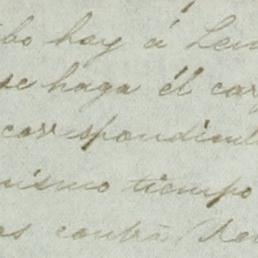 hay á
se haga él car
corspondient
mismo tiempo
os contra